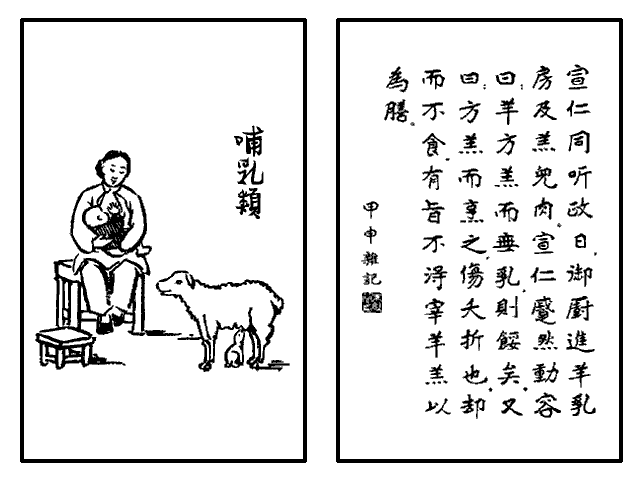 哺乳類
宣仁同听政日，御厨進羊乳
房及羔兒肉，宣仁蹙然動容
曰：羊方羔而無乳，則餒矣。又
曰：方羔而烹之，傷夭折也。却
而不食。有旨不得宰羊羔以
為膳。
甲申雜記